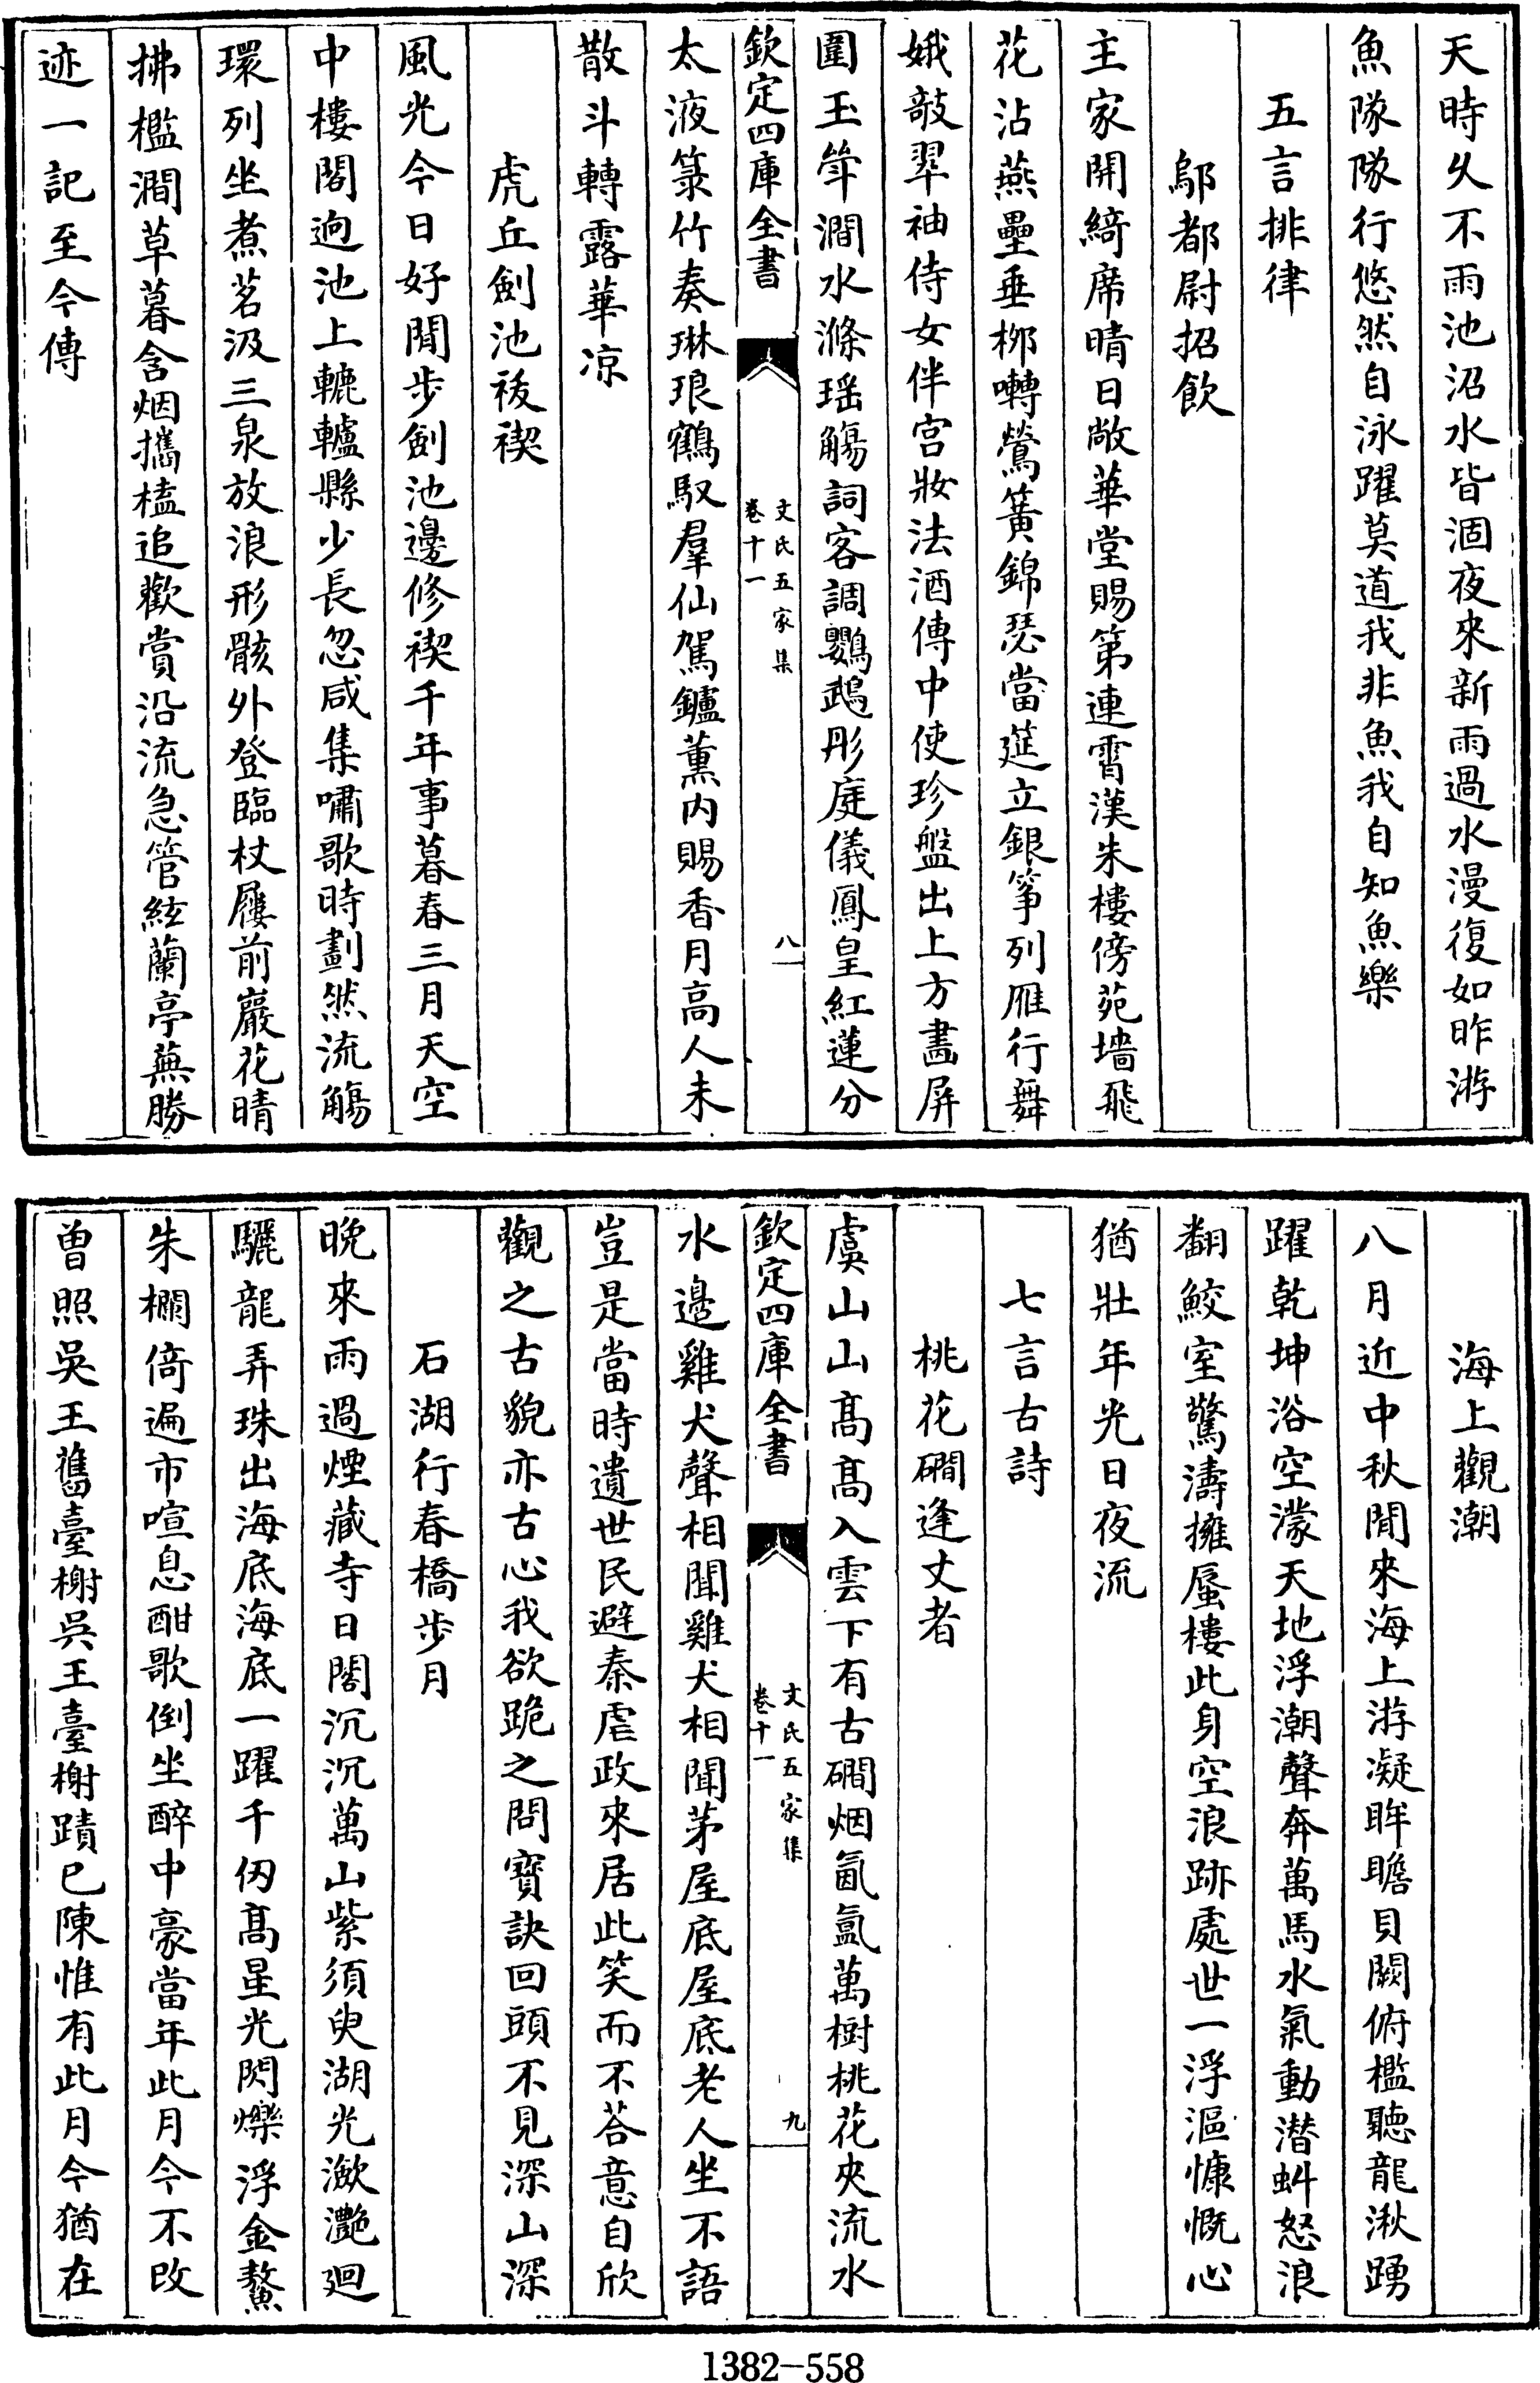 天時久不雨池沼水皆涸夜來新雨過水漫復如昨游
魚隊隊行悠然自泳躍莫道我非魚我自知魚樂
五言排律
鄔都尉招飲
主家開綺席晴日敞華堂賜第連霄漢朱樓傍苑墻飛
花沾燕壘垂桞囀鶯簧錦瑟當筵立銀箏列雁行舞
娥敲翠袖侍女伴宫妝法酒傳中使珍盤出上方畫屏
圍玉筍澗水滌瑶觴詞客調鸚鵡彤庭儀鳳皇紅蓮分
欽定四庫全書
文氏五家集
卷十一
八
太液箓竹奏琳琅鶴馭羣仙駕鑪薰内賜香月高人未
散斗轉露華凉
虎丘劍池祓禊
風光今日好閒步劍池邊修禊千年事暮春三月天空
中樓閣逈池上轆轤縣少長忽咸集嘯歌時劃然流觴
環列坐煮茗汲三泉放浪形骸外登臨杖屨前巖花晴
拂檻澗草暮含烟攜榼追歡賞沿流急管絃蘭亭蕪勝
迹一記至今傳
海上觀潮
八月近中秋閒來海上游凝眸瞻貝闕俯檻聽龍湫踴
躍乾坤浴空濛天地浮潮聲奔萬馬水氣動潜虯怒浪
翻鮫室驚濤擁蜃樓此身空浪跡處世一浮漚慷慨心
猶壯年光日夜流
七言古詩
桃花磵逢丈者
虞山山髙髙入雲下有古磵烟氤氳萬樹桃花夾流水
欽定四庫全書
文氏五家集
卷十一
九
水邊雞犬聲相聞雞犬相聞茅屋底屋底老人坐不語
豈是當時遺世民避秦虐政來居此笑而不荅意自欣
觀之古貌亦古心我欲跪之問寶訣回頭不見深山深
石湖行春橋步月
晚來雨過煙藏寺日閣沉沉萬山紫須臾湖光瀲灔廻
驪龍弄珠出海底海底一躍千仭髙星光閃爍浮金鰲
朱欄倚遍市喧息酣歌倒坐醉中豪當年此月今不改
曽照吳王舊臺榭吳王臺榭蹟已陳惟有此月今猶在
1382-558